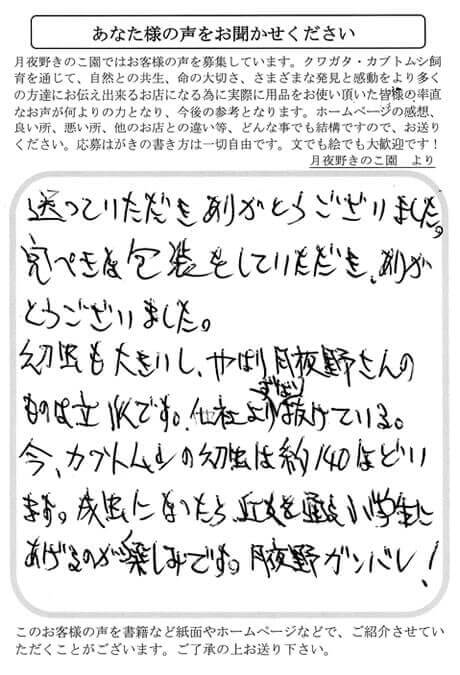 あなた様の声をお聞かせください
月夜野きのこ園ではお客様の声を募集しています。クワガタ・カブトムシ飼
育を通じて、自然との共生、命の大切さ、さまざまな発見と感動をより多く
の方達にお伝え出来るお店になる為に実際に用品をお使い頂いた皆様の率直
なお声が何よりの力となり、今後の参考となります。ホームページの感想、
良い所、悪い所、他のお店との違い等、どんな事でも結構ですので、お送り
ください。応募はがきの書き方は一切自由です。文でも絵でも大歓迎です！
月夜野きのこ園　より
送っていただきありがとうございました。
完ぺきな包装をしていただき、ありが
とうございました。
幼虫も大きいし、やはり月夜野さんの
ものは立派です。他社よりずばり抜けている。
今、カブトムシの幼虫は約140ほどい
ます。成虫になったら、近所の小学生に
あげるのが楽しみです。月夜野ガンバレ！
このお客様の声を書籍など紙面やホームページなどで、ご紹介させてい
ただくことがございます。ご了承の上お送り下さい。